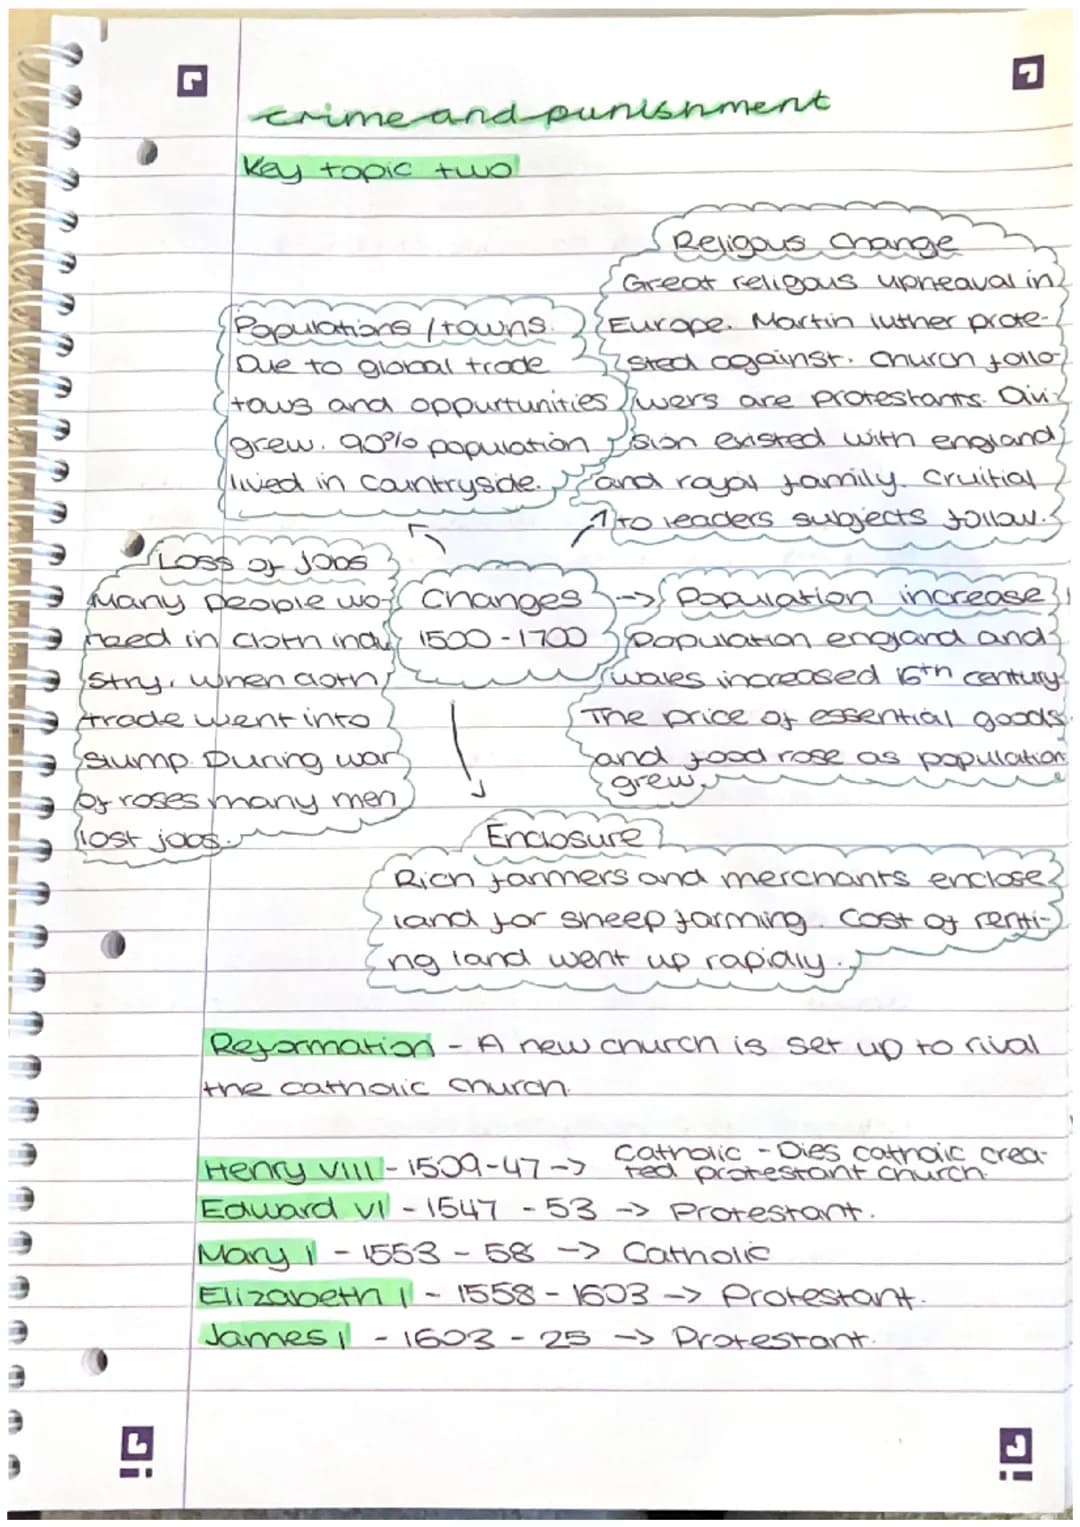 crime and punishment
Key topic two
Religous Change
Great religous upheaval in
Europe. Martin luther prote-
sted against. Church follo-
wers are protestants. Divi-
sion existed with england
and royal family. Cruitial
to leaders subjects follow.
Populations / towns.
Due to global trade
tows and oppurtunities
grew. 90% population
lived in Countryside.
Loss of Jobs
Many people wo-
rked in cloth indu
stry. When cloth
trade went into
slump. During war
of roses many men
lost jobs.
Changes
1500 - 1700
Population increase
Population england and
wales increased 16th century
The price of essential goods
and food rose as population
grew.
Enclosure
Rich farmers and merchants enclose
land for sheep farming. Cost of renti-
ng land went up rapidly.
Reformation - A new church is set up to rival
the catholic church.
Henry VIII - 1509-47 -> Catholic - Dies catholic crea-
ted protestant church.
Edward VI - 1547 - 53 -> Protestant.
Mary I - 1553 - 58 -> Catholic
Elizabeth I - 1558 - 1603 -> Protestant.
James I - 1603 - 25 -> Protestant.